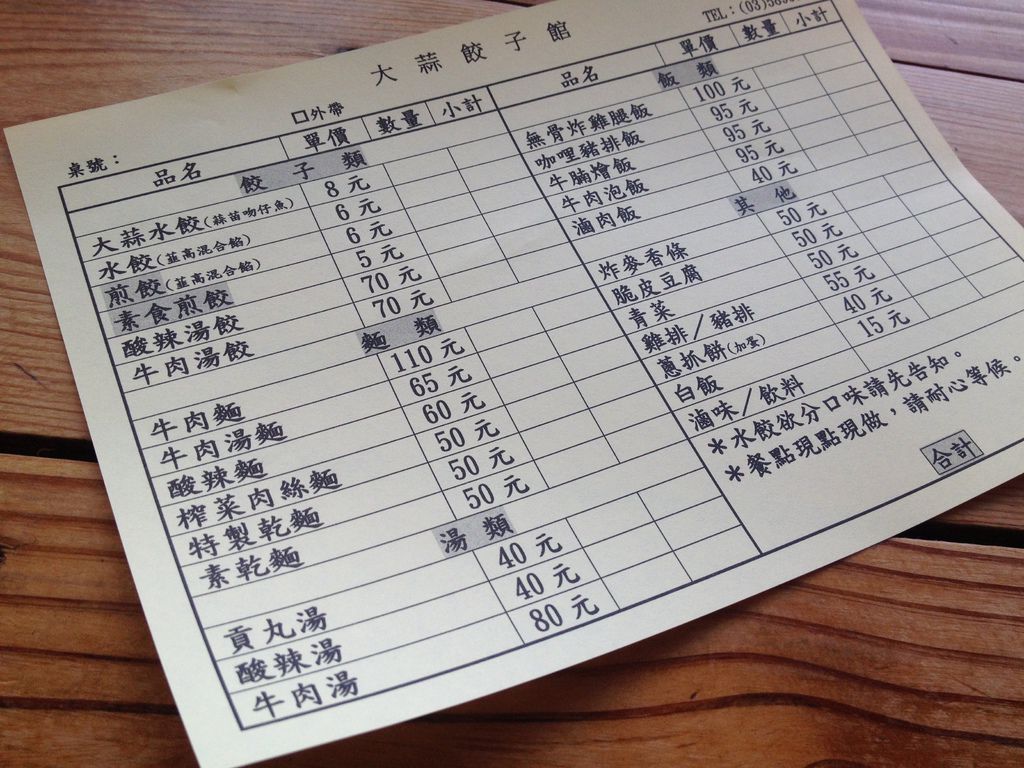 大蒜餃子館
TEL：(03)
桌號：
□外帶
品名 單價 數量 小計
餃子類
大蒜水餃(蒜苗吻仔魚) 8元
水餃(韮高混合餡) 6元
煎餃(韮高混合餡) 6元
素食煎餃 5元
酸辣湯餃 70元
牛肉湯餃 70元
麵類
牛肉麵 110元
牛肉湯麵 65元
酸辣麵 60元
榨菜肉絲麵 50元
特製乾麵 50元
素乾麵 50元
湯類
貢丸湯 40元
酸辣湯 40元
牛肉湯 80元
品名 單價 數量 小計
飯類
無骨炸雞腿飯 100元
咖哩豬排飯 95元
牛腩燴飯 95元
牛肉泡飯 95元
滷肉飯 40元
其他
炸麥香條 50元
脆皮豆腐 50元
青菜 50元
雞排／豬排 55元
蔥抓餅(加蛋) 40元
白飯 15元
滷味／飲料
＊水餃欲分口味請先告知。
＊餐點現點現做，請耐心等候。
合計